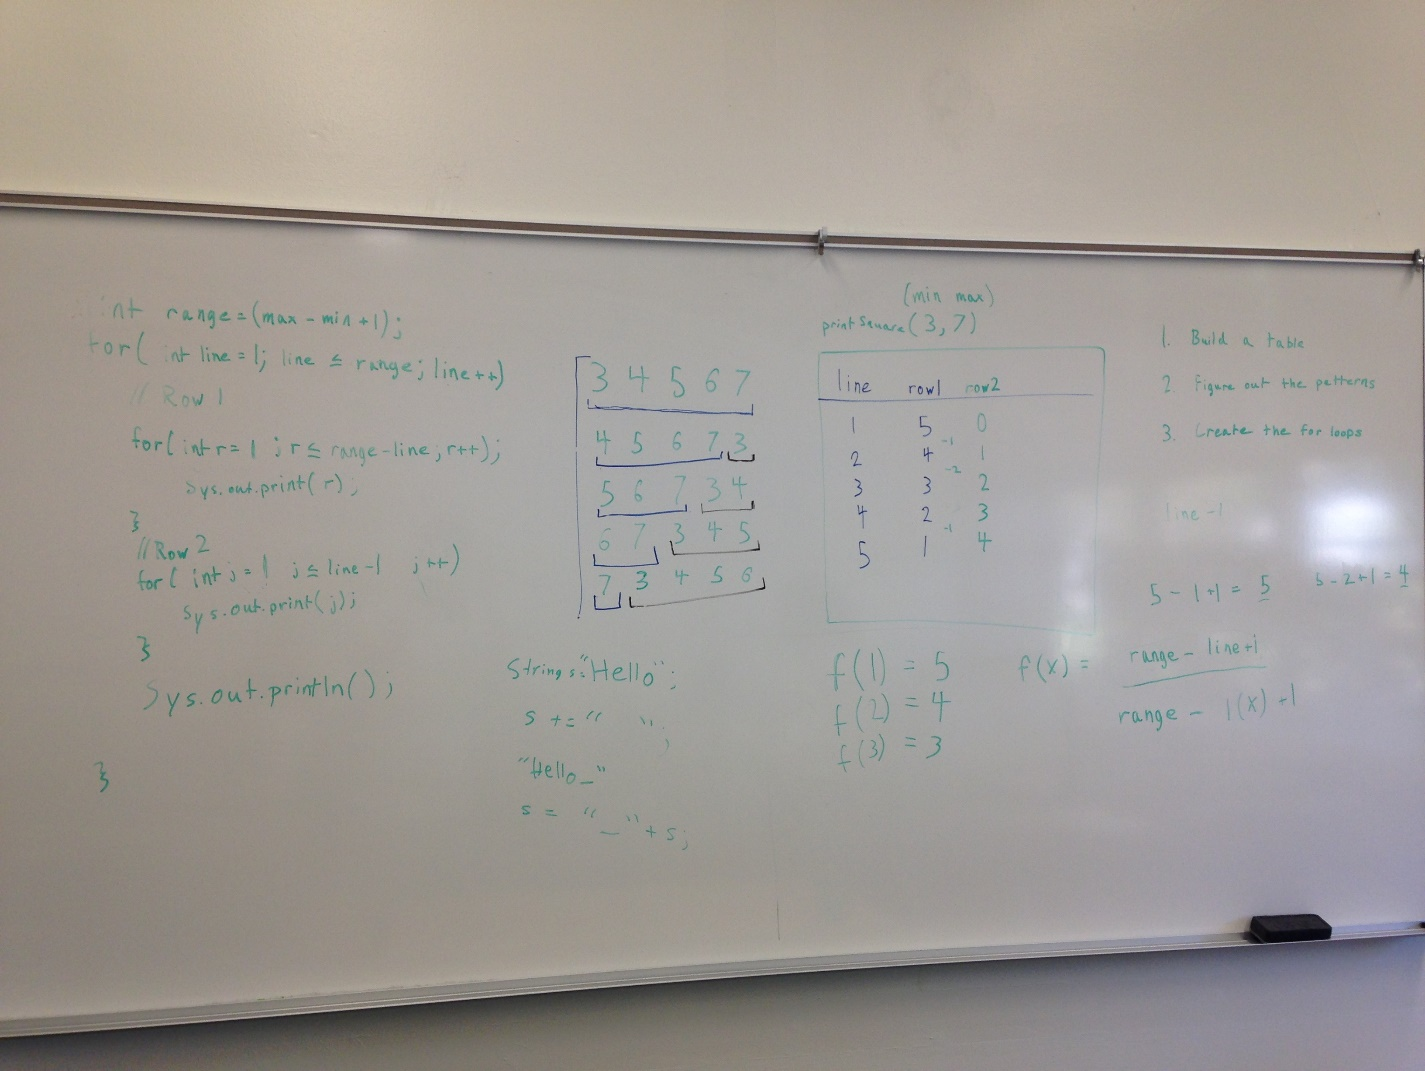 int range=(max-min+1);
for( int line=1; line ≤ range; line++)
// Row 1
for(int r=1 ;r ≤ range-line, r++);
Sys.out.print(r);
}
//Row 2
for( int j=1 j≤line-1 j++)
Sys.out.print(j);
}
Sys.out.println();
}
3 4 5 6 7
4 5 6 7 3
5 6 7 3 4
6 7 3 4 5
7 3 4 5 6
String s="Hello";
s += " ";
"Hello_"
s = "_"+s;
(min max)
printSquare(3,7)
line row1 row2
1 5 0
-1
2 4 1
-2
3 3 2
4 2 3
-1
5 1 4
f(1) = 5
f(2) = 4
f(3) = 3
1. Build a table
2. Figure out the patterns
3. Create the for loops
line -1
5-1+1= 5
5-2+1=4
f(x) = range-line+1
range - 1(x)+1